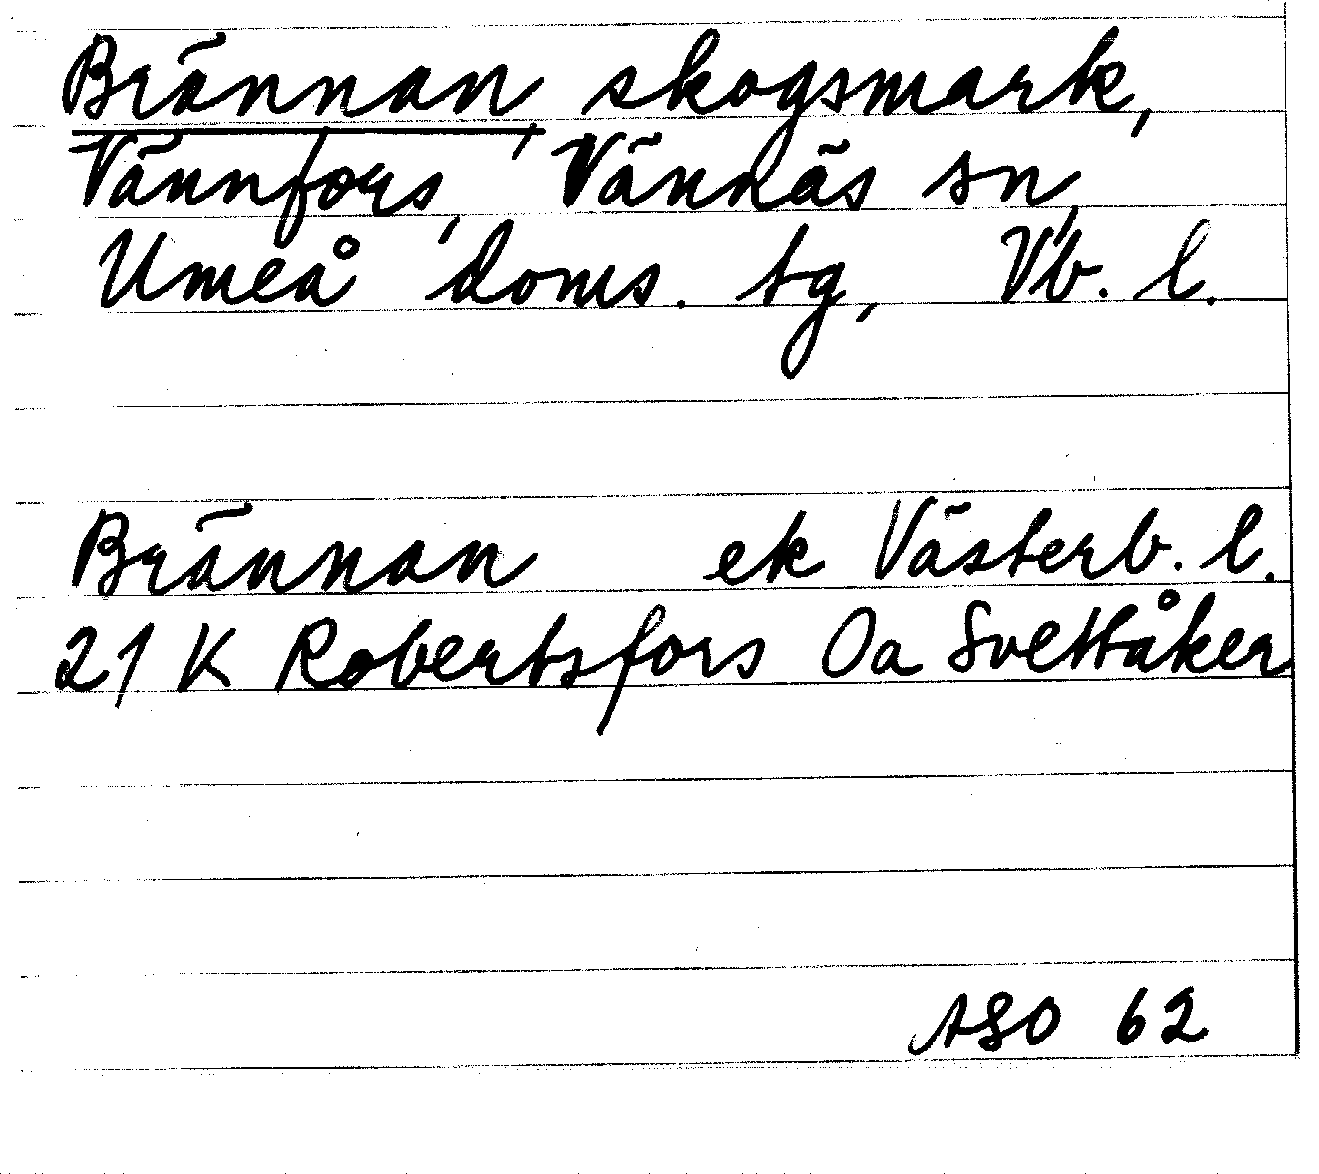 Brännan, skogsmark,
Vännfors, Vännäs sn,
Umeå doms. tg, Vb. l.
Brännan ek Västerb. l.
21 K Robertsfors Oa Svettåker
ASO 62